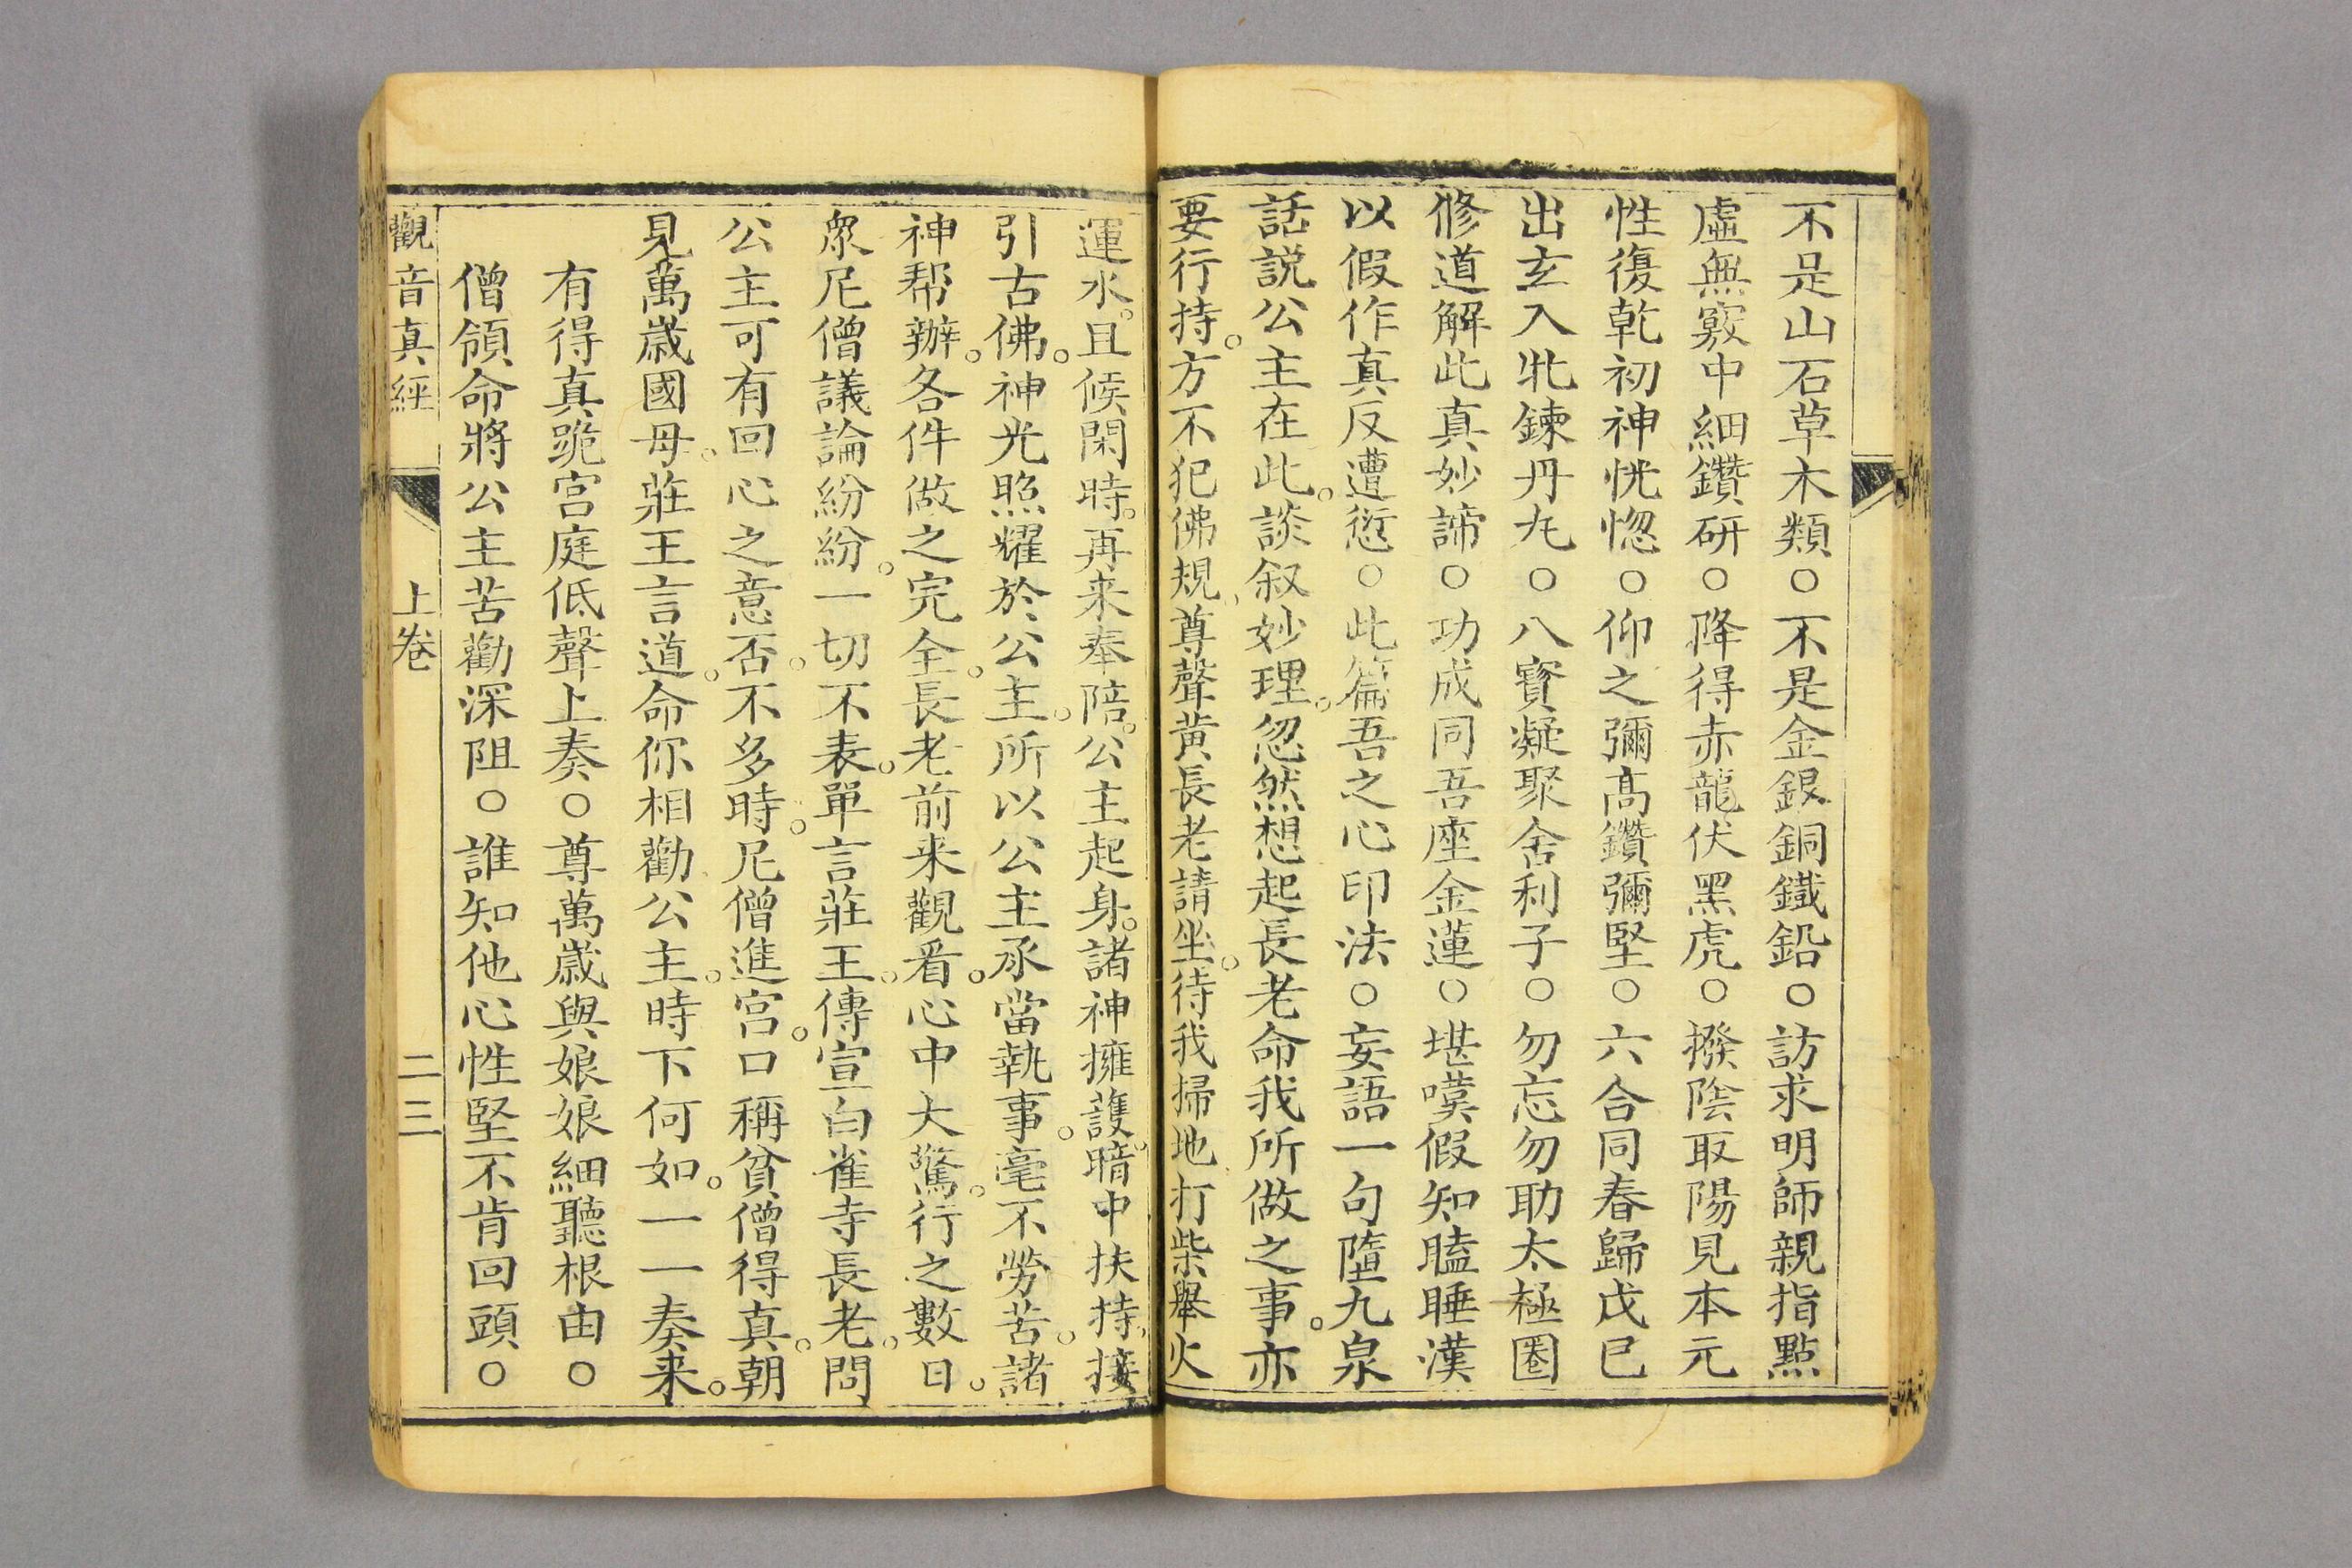 不是山石草木類○不是金銀銅鐵鉛○訪求明師親指點
虛無竅中細鑽研○降得赤龍伏黑虎○撥陰取陽見本元
性復乾初神恍惚○仰之彌高鑽彌堅○六合同春歸戊己
出玄入牝鍊丹丸○八寶凝聚舍利子○勿忘勿助太極圈
修道解此真妙諦○功成同吾座金蓮○堪嘆假知瞌睡漢
以假作真反遭愆○此篇吾之心印法○妄語一句墮九泉
話說公主在此。談叙妙理。忽然想起長老命我所做之事。亦
要行持。方不犯佛規。尊聲黃長老請坐。待我掃地打柴舉火
運水。且候閑時。再来奉陪。公主起身。諸神擁護。暗中扶持。接
引古佛。神光照耀於公主。所以公主承當執事。毫不勞苦。諸
神帮辦。各件做之完全。長老前来觀看。心中大驚。行之數日。
眾尼僧議論紛紛。一切不表。單言莊王。傳宣白雀寺長老。問
公主可有回心之意否。不多時。尼僧進宮。口稱貧僧得真。朝
見萬歲國母。莊王言道。命你相勸公主。時下何如。一一奏来。
有得真跪宮庭低聲上奏○尊萬歲與娘娘細聽根由○
僧領命將公主苦勸深阻○誰知他心性堅不肯回頭○
觀音真經 上卷 二三